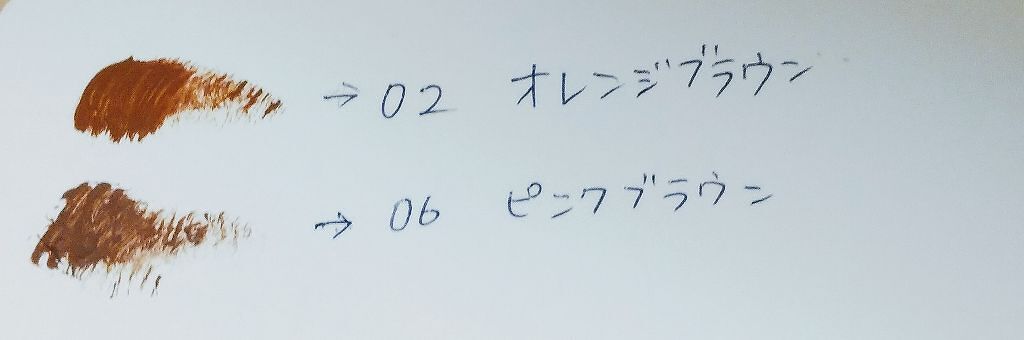 → 02 オレンジブラウン
→ 06 ピンクブラウン